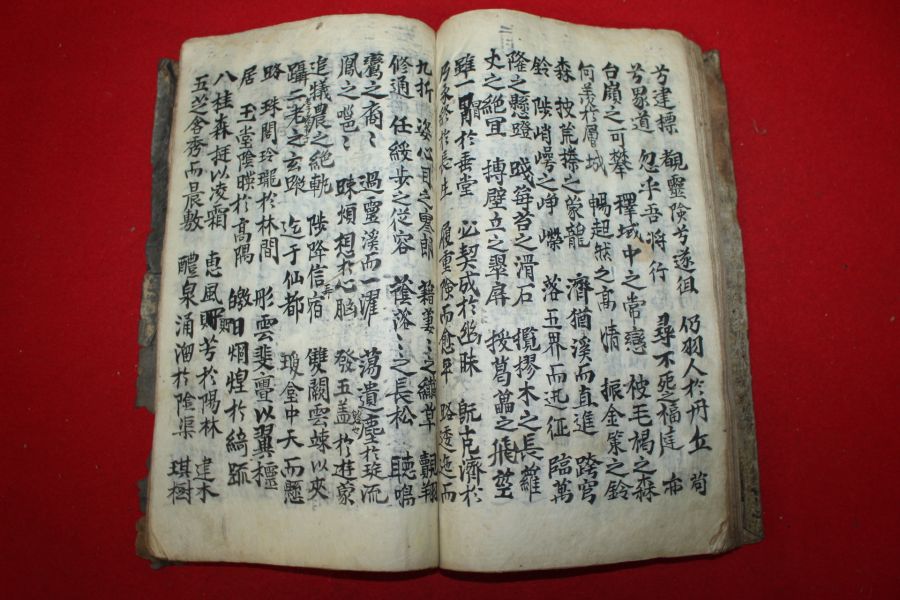 兮建標 覩靈險兮遂徂 仍羽人於丹丘 苟
兮界道 忽乎吾將行 尋不死之福庭 布
台嶺之可攀 釋域中之常戀 被毛褐之森
何羨於層城 暢超然之高情 振金策之鈴
森 披荒榛之蒙龍 濟猶溪而直進 跨穹
鈴 陟峭崿之崢嶸 落五界而迅征 臨萬
隆之懸磴 踐莓苔之滑石 攬樛木之長蘿
丈之絕冥 搏壁立之翠屏 援葛藟之飛莖
雖一冒於垂堂 必契成於幽昧 既克濟於
乃永於長生 履重險而愈平 路逶迤而
九折 恣心目之寥朗 藉萋〻之纖草 覿翔
修通 任緩步之從容 蔭落〻之長松 聽鳴
鸞之裔〻 過靈溪而一濯 蕩遺塵於旋流
鳳之嗈〻 疎煩想於心胸 發五盖於遊蒙
追犧農之絕軌 陟降信宿 雙闕雲竦以夾
躡二老之玄蹤 迄于仙都 瓊臺中天而懸
路 珠閣玲瓏於林間 彤雲斐亹以翼櫺
居 玉堂陰暎於高隅 皦日烱煌於綺疏
八桂森挺以凌霜 惠風貯芳於陽林 建木
五芝含秀而晨敷 醴泉涌溜於陰渠 琪樹